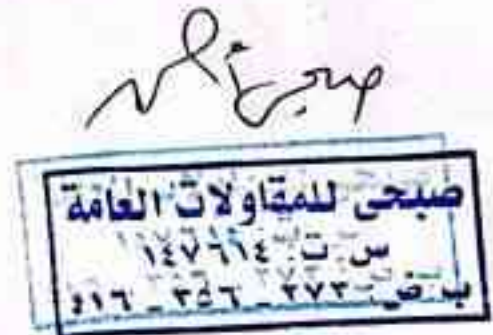 صبحى للمقاولات العامة
س.ت: ١٤٧٦١٤
ب.ض: ٣٧٣ - ٣٥٦ - ٤١٦